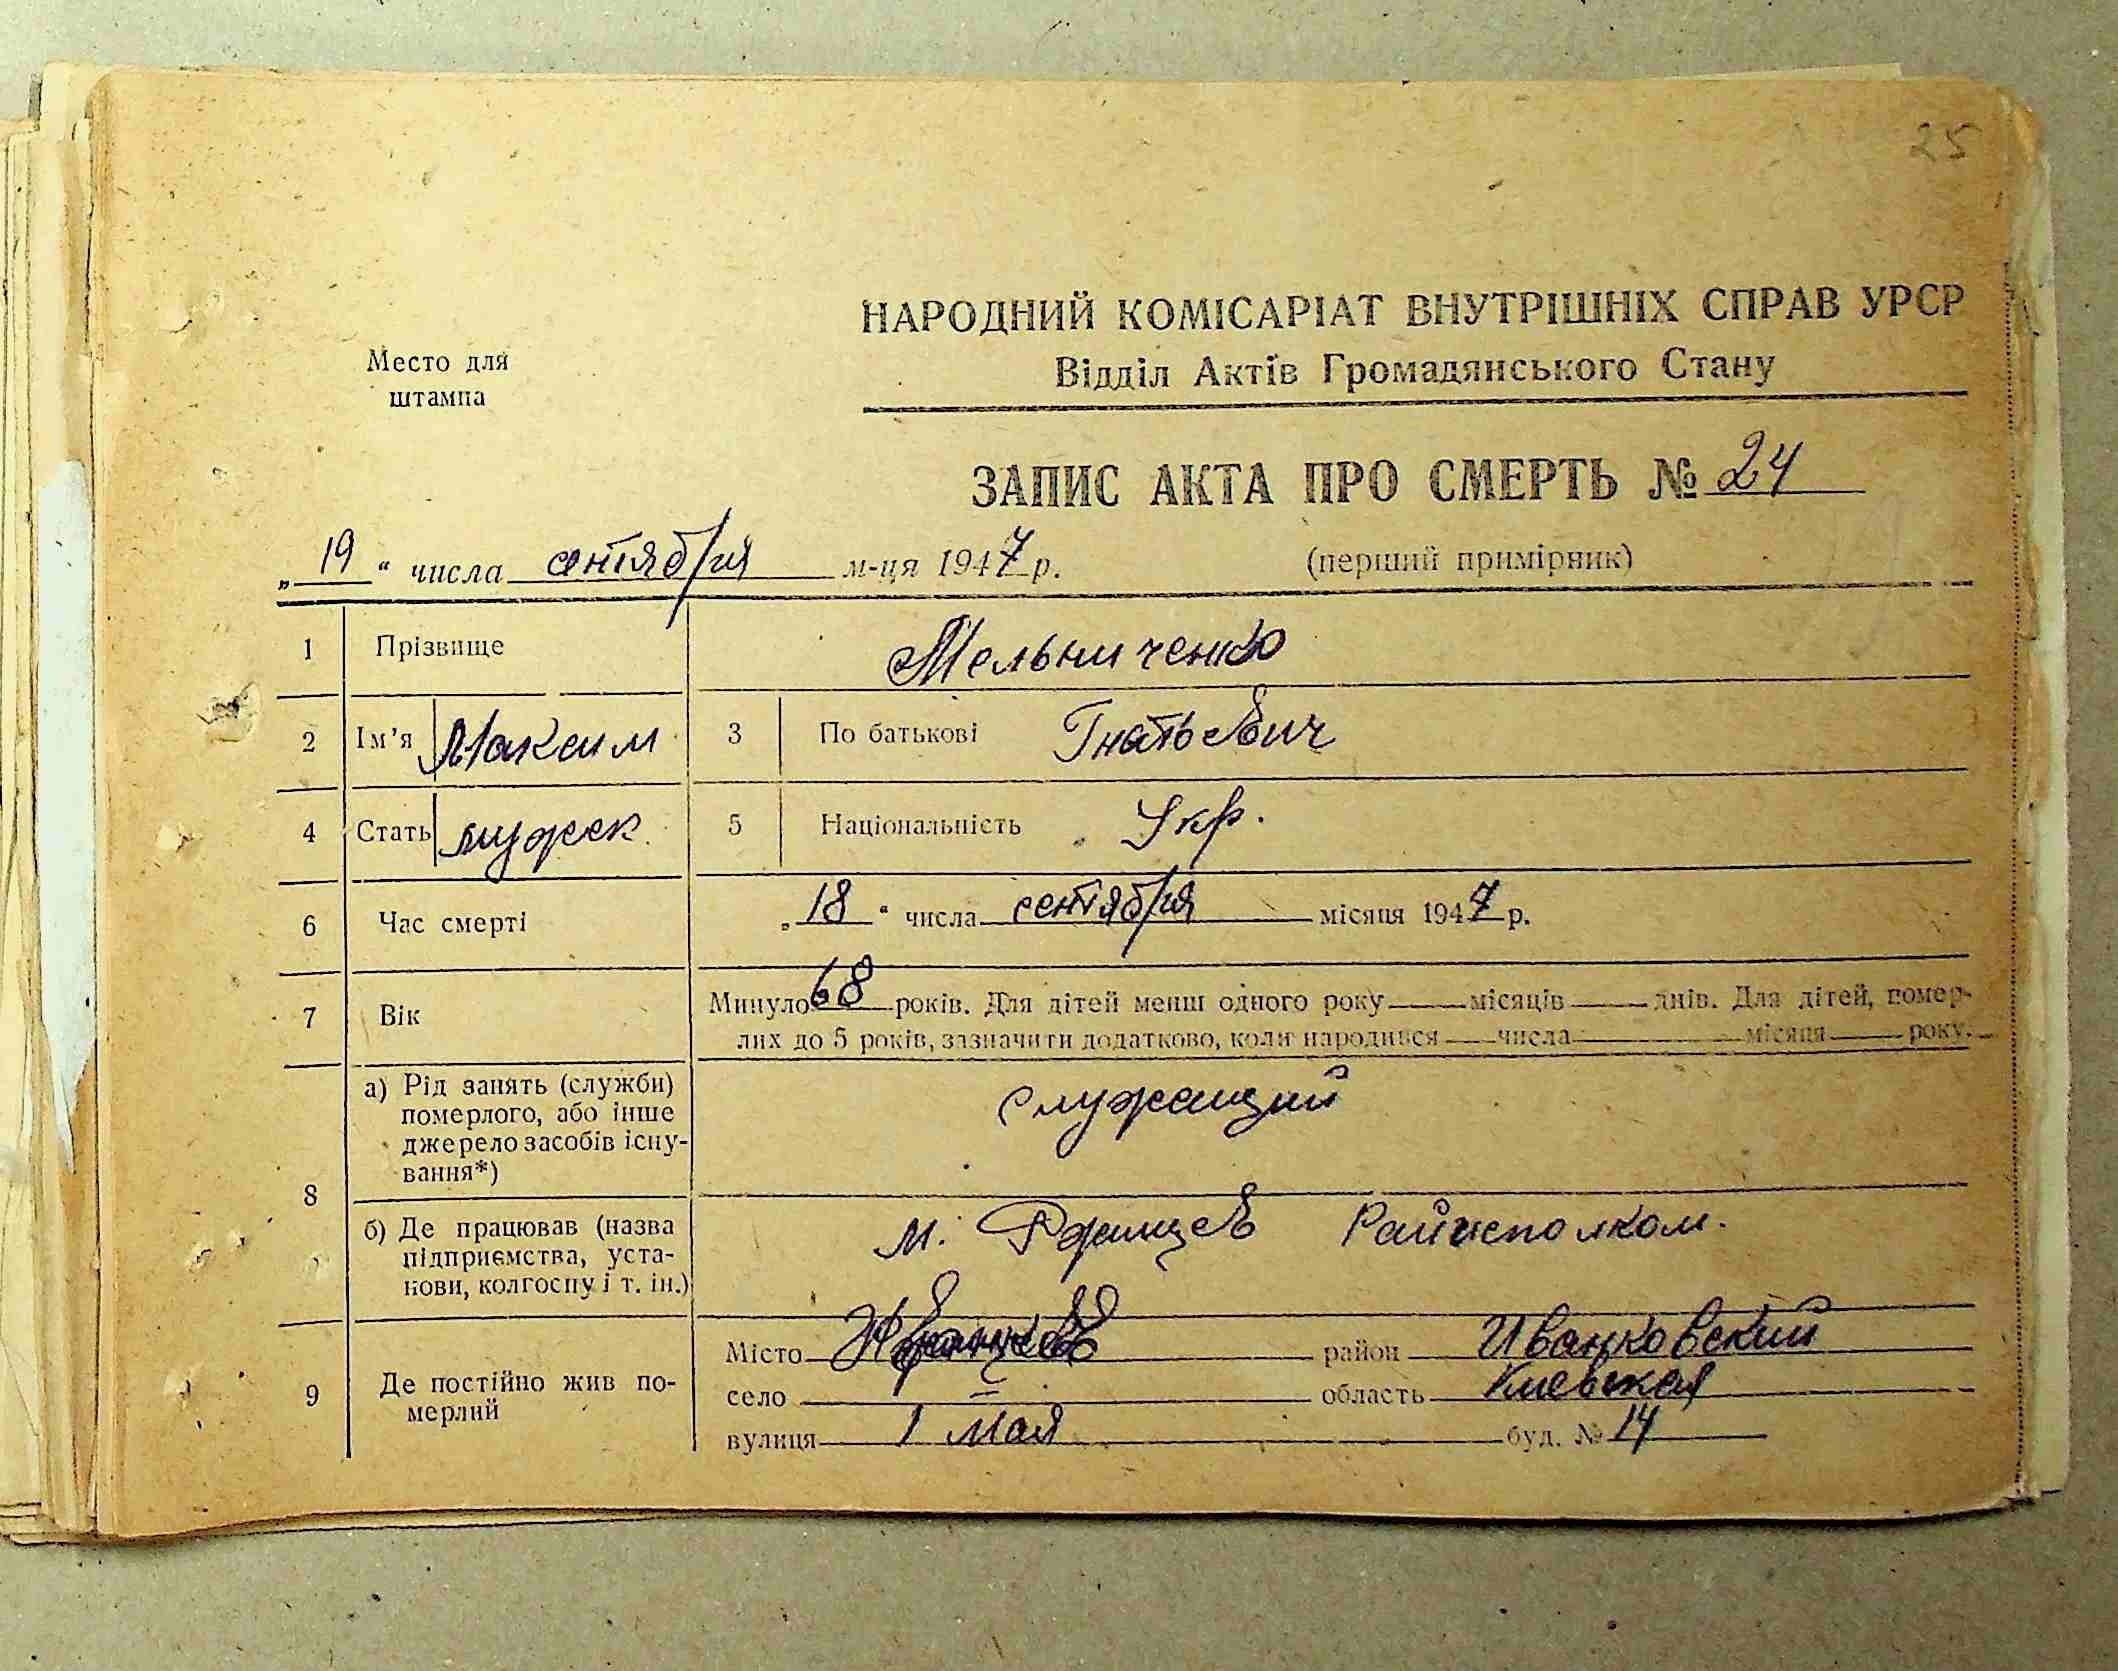 25
НАРОДНИЙ КОМІСАРІАТ ВНУТРІШНІХ СПРАВ УРСР
Відділ Актів Громадянського Стану
Место для
штампа
ЗАПИС АКТА ПРО СМЕРТЬ № 24
„19“ числа сентября м-ця 1947 р. (перший примірник)
1 Прізвище Мельниченко
2 Ім’я Максим 3 По батькові Гнатьевич
4 Стать мужск 5 Національність Укр.
6 Час смерті „18“ числа сентября місяця 1947 р.
7 Вік Минуло 68 років. Для дітей менш одного року місяців днів. Для дітей, помер-
лих до 5 років, зазначити додатково, коли народився числа місяця року.
8 а) Рід занять (служби) померлого, або інше джерело засобів існу-вання*) служащий
б) Де працював (назва підприємства, уста-нови, колгоспу і т. ін.) м. Райисполком.
9 Де постійно жив по-мерлий Місто район Иванковский
село — область Киевская
вулиця 1 Мая буд. № 14